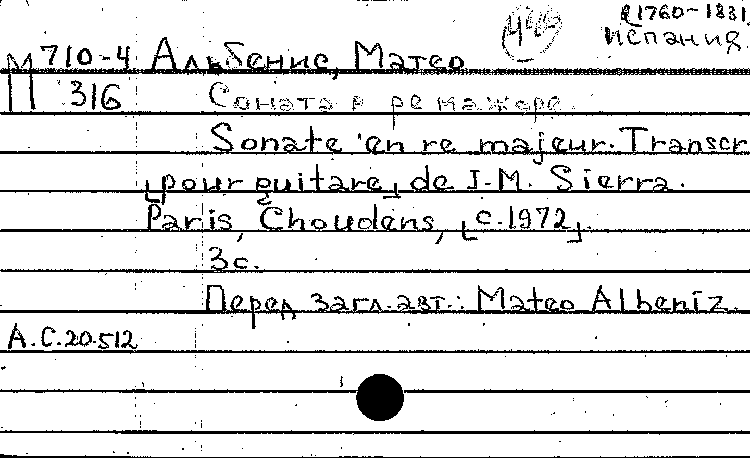 1760-1831
Испания.
М 710-4 Альбенис, Матео
316 Соната ре мажоре.
Sonate en re majeur. Transcr
[pour guitare] de J.-M. Sierra.
Paris, Choudens, [c.1972].
3с.
Перед загл. авт.: Mateo Albeniz.
А.С.20.512